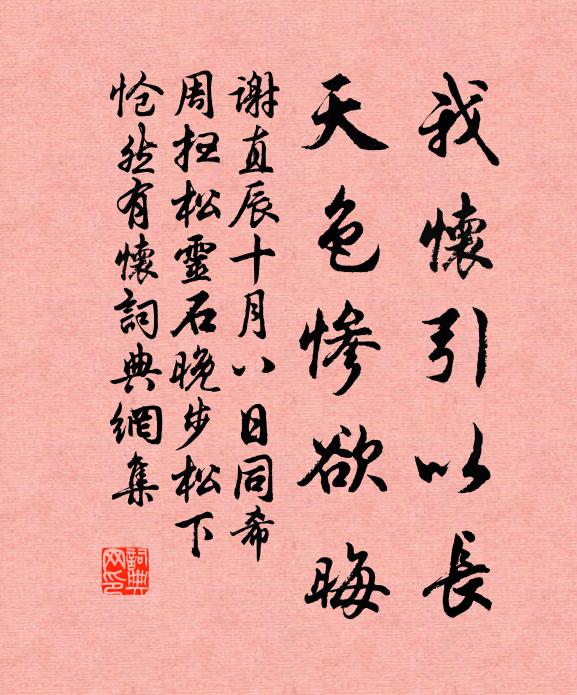 我懷引以長
天色慘欲晦
謝直辰十月八日同希
周抂松靈石晚步松下
愴然有懷詞典網集
詞典网印